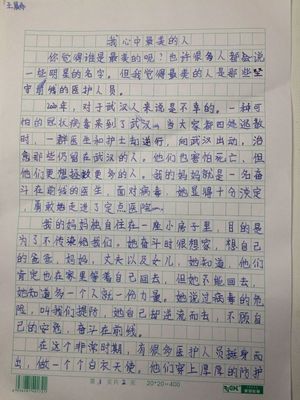 我心中最美的人
你觉得谁是最美的呢?也许很多人都会说
一些明星的名字。但我觉得最美的人是那些坚
守前线的医护人员。
2020年,对于武汉人来说是不幸的。一种可
怕的冠状病毒来到了武汉。当大家都四处逃散
时,一群医生和护士却逆行,向武汉出动,治
愈那些仍留在武汉的人。他们也害怕死亡、但
他们更想拯救更多的人。我的妈妈就是一名奋
斗在前线的医生。面对病毒,她显得十分淡定
,勇敢地走进了定点医院。
我的妈妈独自住在一座小房子里,目的是
为了不传染给我们。她奋斗时很想家,想自己
的爸爸,妈妈,丈夫以及女儿。她知道,他们
肯定也在家里等着自己回去,但她不能回去,
她知道多一个人就一份力量。她说过病毒的危
险,叫我们提防,她自己却逆流而去,不顾自
己的安危,奋斗在前线。
在这个非常时期,有很多医护人员挺身而
出,做一个个白衣天使。他们穿上厚厚的防护
第1页共2页 20*20=400